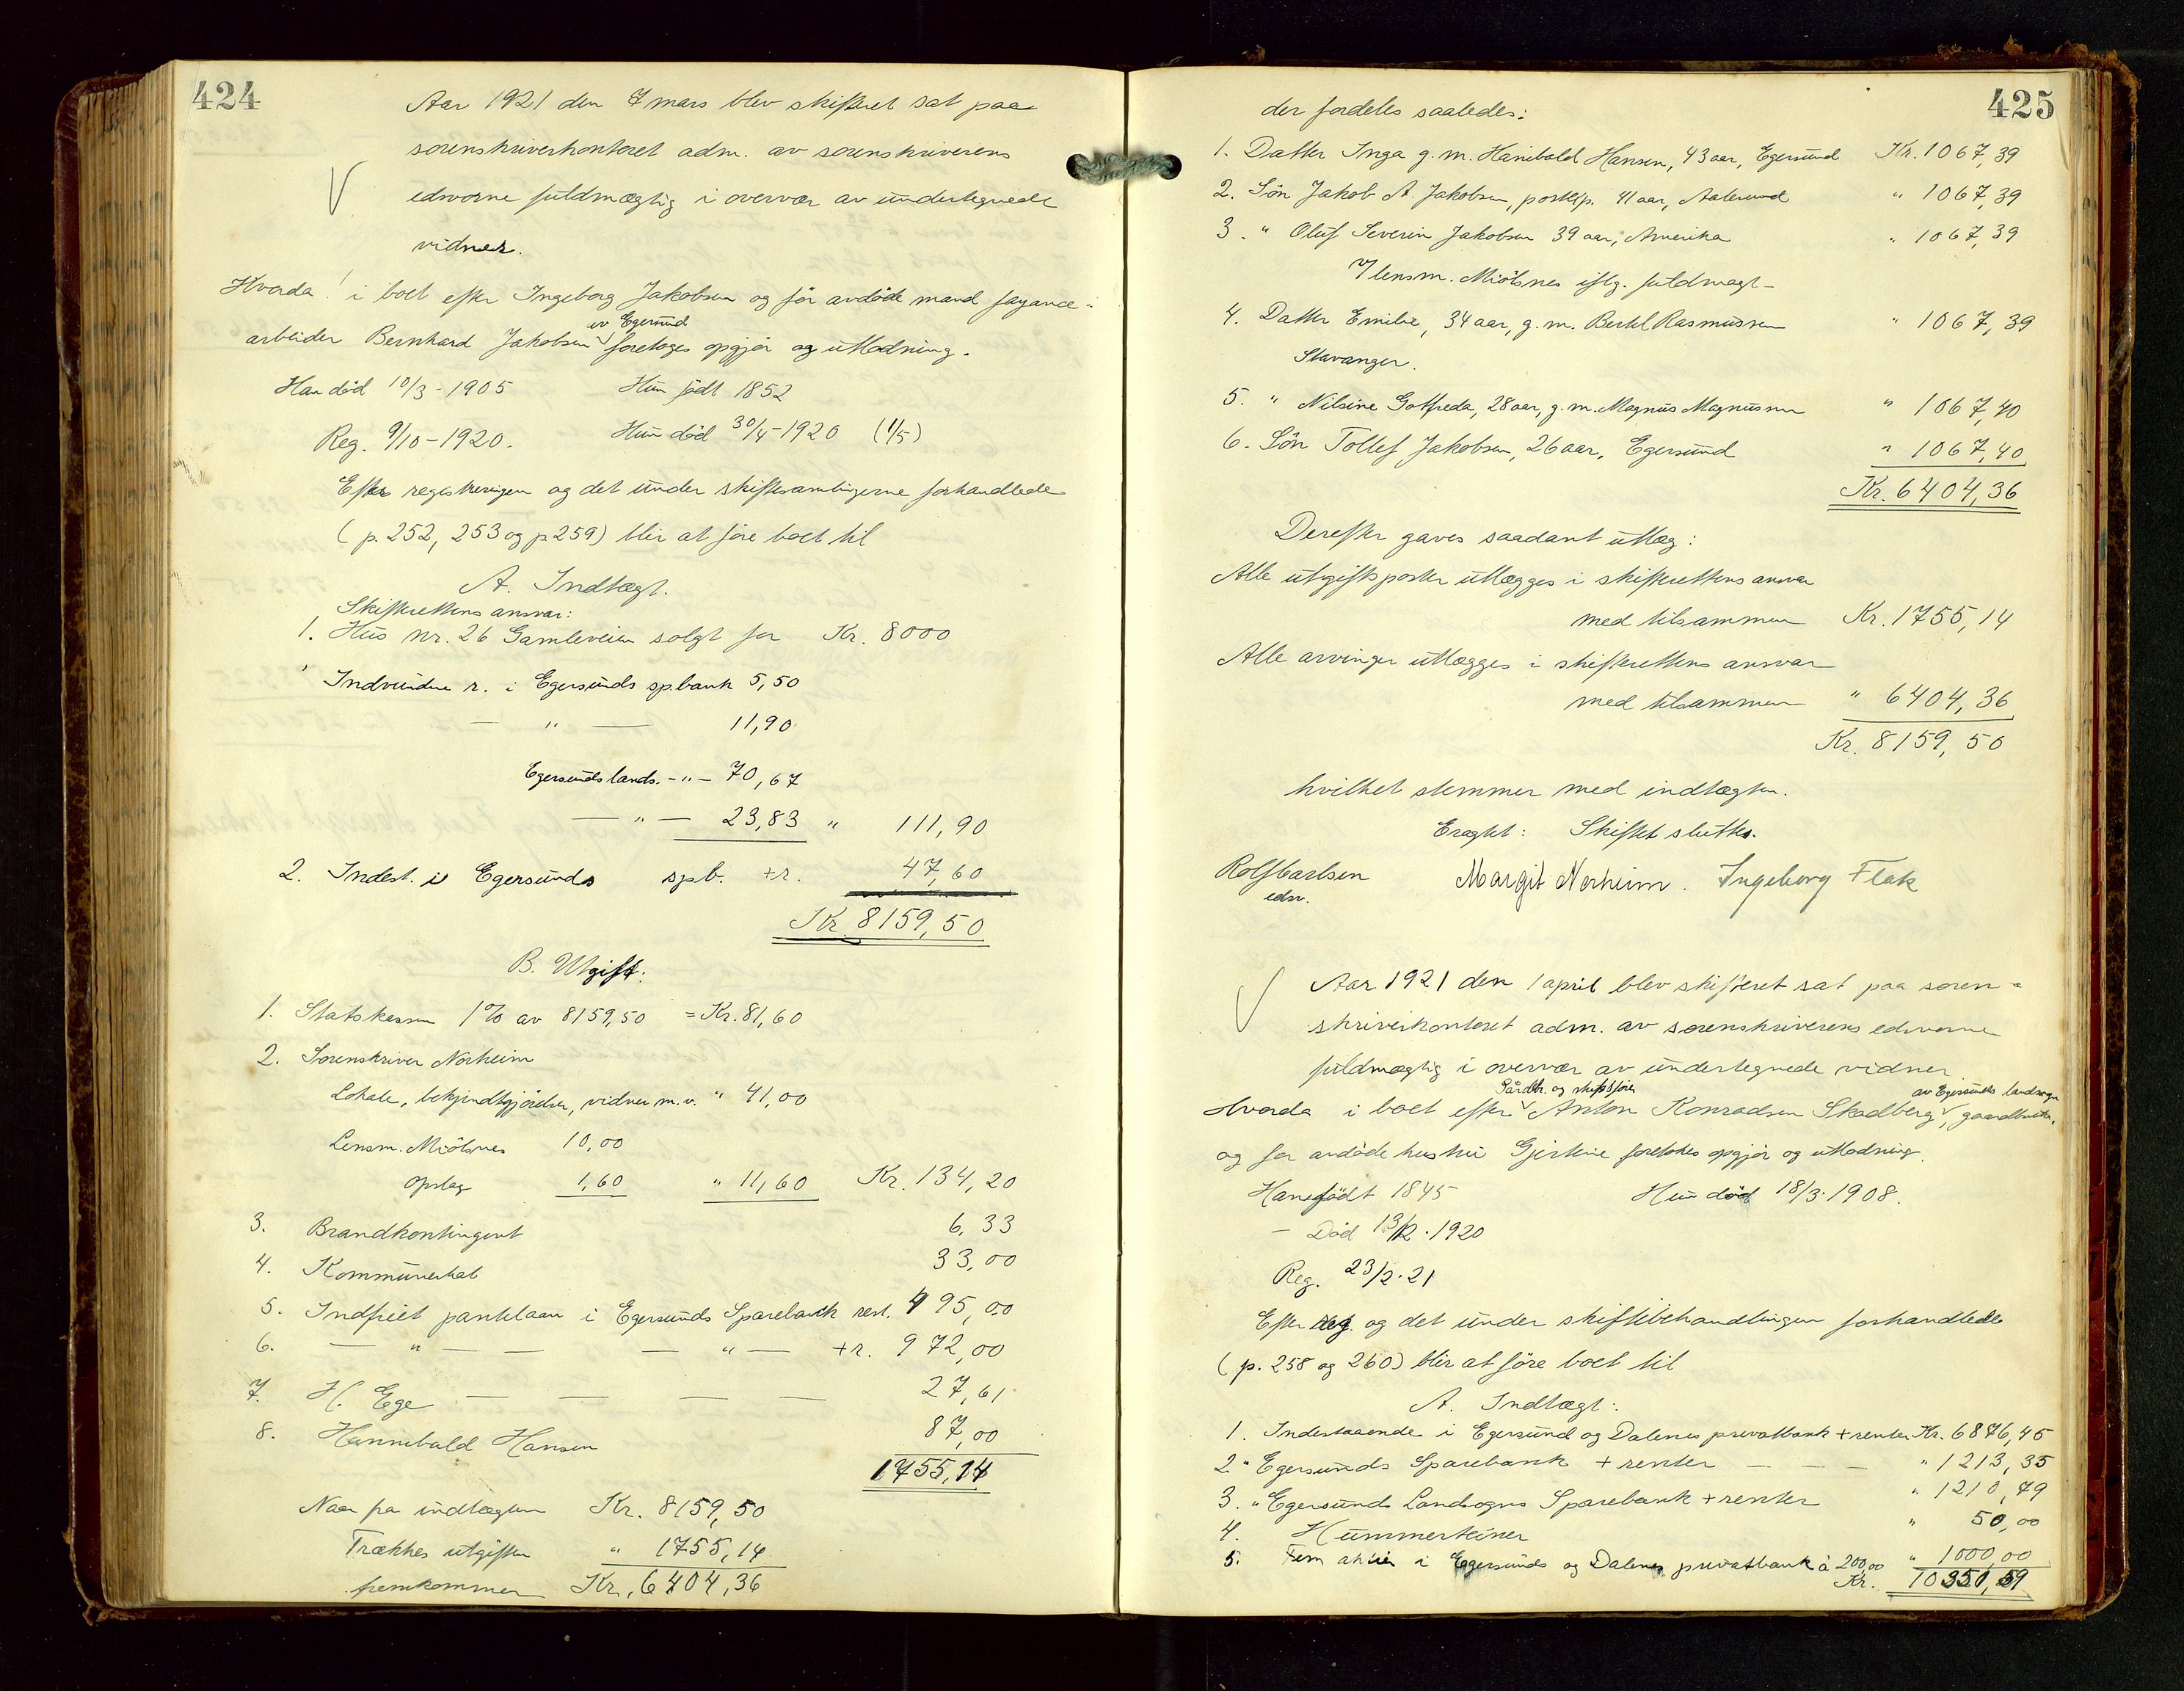 424
Aar 1921 den 7 mars blev skifteret sat paa
sorenskriverkontoret adm. av sorenskriverens
edsvorne fuldmægtig i overvær av undertegnede
vidner.
Hvorda! i boet efter Ingeborg Jakobsen og før avdøde mand fayance-
av Egersund
arbeider Bernhard Jakobsen foretoges opgjør og utlodning.
Han død 10/3-1905 Hun født 1852
Reg. 9/10-1920. Hun død 30/4-1920 (1/5)
Efter registreringen og det under skiftesamlingerne forhandlede
(p. 252, 253 og p 259) blir at føre boet til
A. Indtægt.
Skifterettens ansvar:
1. Hus nr. 26 Gamleveien solgt for Kr. 8000
Indvundne r. i Egersunds sp.bank 5,50
— " — 11,90
Egersunds lands. -"- 70,67
— " — 23,83 " 111,90
2. Indest. i Egersunds spb. +r. 47,60
Kr. 8159,50
B. Utgift.
1. Statskassen 1% av 8159,50 = Kr. 81,60
2. Sorenskriver Norheim
Lokale, bekjendtgjørelser, vidner m.v. " 41,00
Lensm. Miölsnes 10,00
Opslag 1,60 " 11,60 Kr. 134,20
3. Brandkontingent 6,33
4. Kommuneskat 33,00
5. Indfriet pantelaan i Egersunds Sparebank rest. 495,00
6. — " — — — " — +r. 972,00
7. H. Ege — — — — 27,61
8. Hannibald Hansen 87,00
1755,14
Naar fra indtægten Kr. 8159,50
Trækkes utgiften " 1755,14
fremkommer Kr. 6404,36
425
der fordeles saaledes:
1. Datter Inga g.m. Hanibald Hansen, 43 aar, Egersund Kr. 1067,39
2. Søn Jakob A. Jakobsen, postexp. 41 aar, Aalesund " 1067,39
3. " Oluf Severin Jakobsen 39 aar, Amerika " 1067,39
v/ lensm. Miölsnes iflg. fuldmagt -
4. Datter Emilie, 34 aar, g.m. Bertel Rasmussen " 1067,39
Stavanger.
5. " Nilsine Gotfreda, 28 aar, g.m. Magnus Magnussen " 1067,40
6. Søn Tollef Jakobsen, 26 aar, Egersund " 1067,40
Kr. 6404,36
Derefter gaves saadant utlæg:
Alle utgiftsposter utlægges i skifterettens ansvar
med tilsammen Kr. 1755,14
Alle arvinger utlægges i skifterettens ansvar
med tilsammen " 6404,36
Kr. 8159,50
hvilket stemmer med indtægten.
Eragtet: Skiftet sluttes.
Rolf Carlsen Margit Norheim. Ingeborg Flak
edsv.
Aar 1921 den 1 april blev skifteret sat paa soren-
skriverkontoret adm. av sorenskriverens edsvorne
fuldmægtig i overvær av undertegnede vidner
Gårdbr. og skibsfører av Egersunds landsogn
Hvorda i boet efter Anton Konradsen Skadberg, gaardbruker,
og før avdøde hustru Gjertine foretokes opgjør og utlodning.
Han født 1845 Hun død 18/3-1908.
— Død 13/12-1920
Reg. 23/2-21
Efter reg. og det under skiftebehandlingen forhandlede
(p. 258 og 260) blir at føre boet til
A. Indtægt:
1. Indestaaende i Egersund og Dalenes privatbank + renter Kr. 6876,45
2. " Egersunds Sparebank + renter — — — " 1213,35
3. " Egersunds Landsogns Sparebank + renter " 1210,79
4. Hummerteiner " 50,00
5. Fem aktier i Egersunds og Dalenes privatbank à 200,00 " 1000,00
Kr. 10350,59